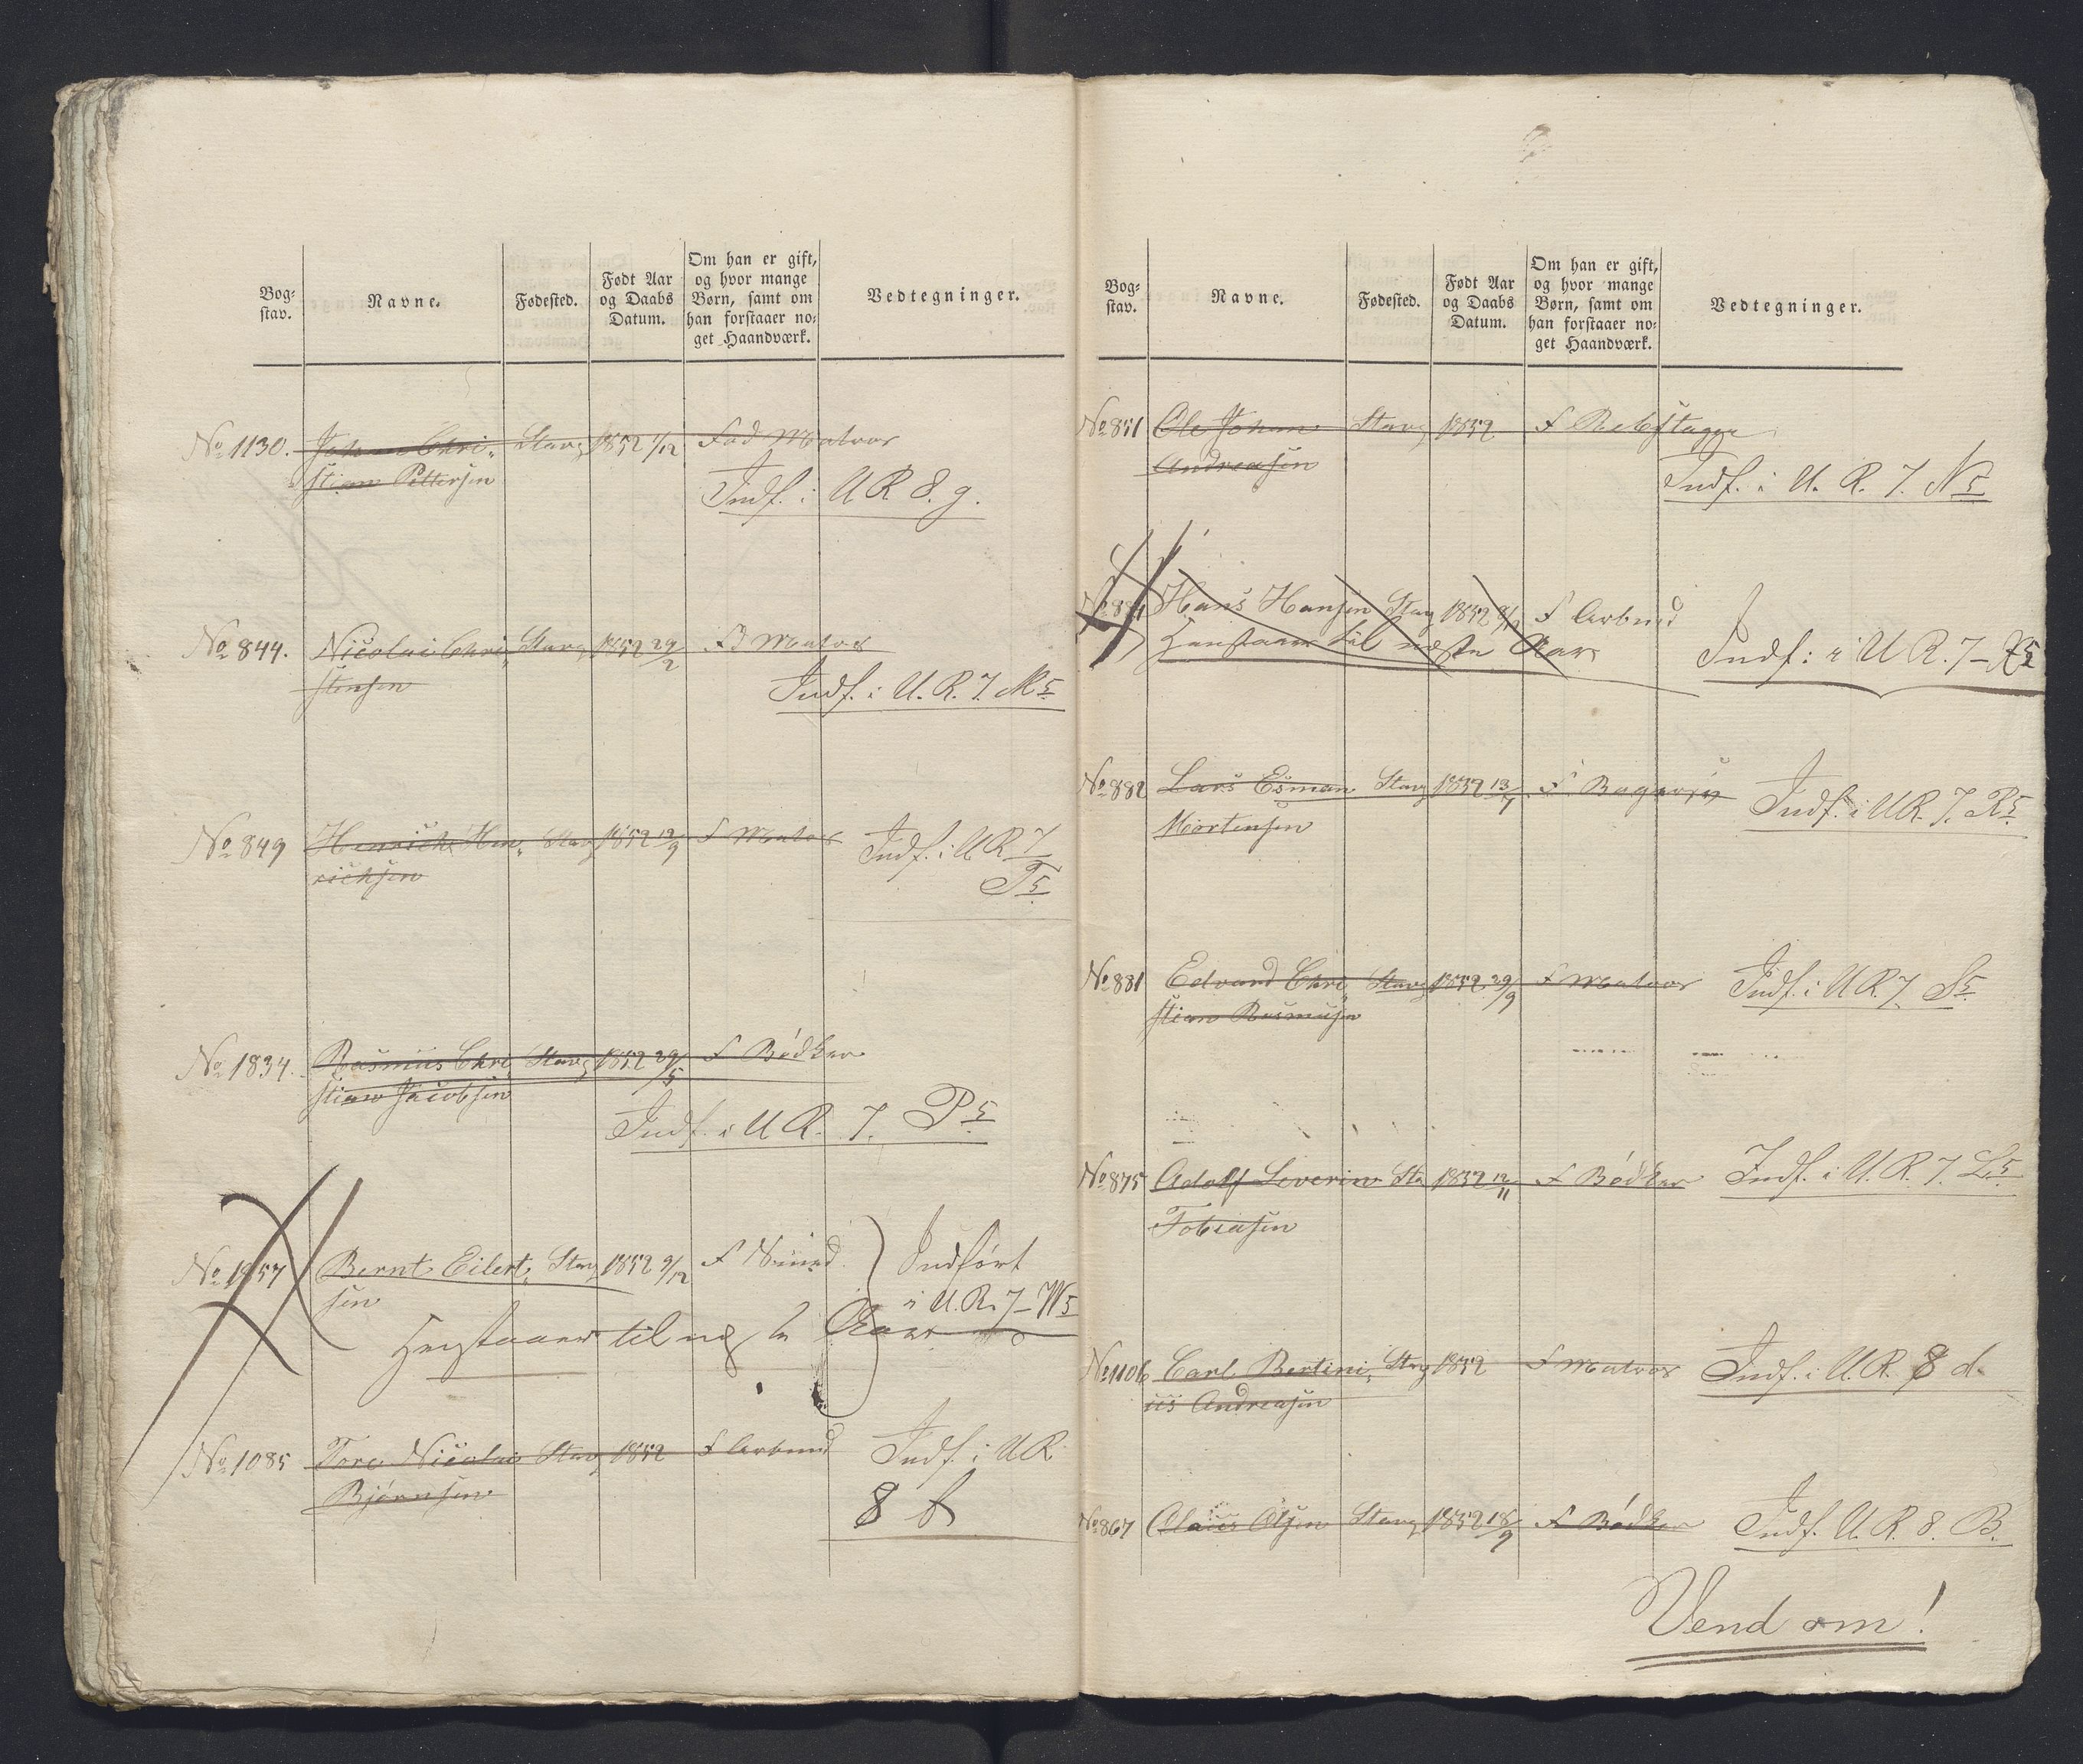 Bog-
stav.
Navne.
Fødested.
Født Aar
og Daabs
Datum.
Om han er gift,
og hvor mange
Børn, samt om
han forstaaer no-
get Haandværk.
Vedtegninger.
No 1130. Johan Chri- Stavg 1852 1/12 Fad Matros
stian Pettersen
Indf. i U R 8. g.
No 844. Nicolai Chri- Stavg 1852 29/2 F Matros
stensen
Indf. i U. R. 7. M5
No 849 Henrich Hen- Stavg 1852 12/9 F Matros Indf. i U R 7
richsen T5
No 1834. Rasmus Chri- Stavg 1852 29/5 F Bødker
stian Jacobsen
Indf. i U R. 7. P5
No 1957 Bernt Eilert- Stavg 1852 9/12 F Indført
sen i U. R. 7 - W5
Henstaaer til næste Aar
No 1085 Tore Nicolai Stavg 1852 F Arbmd Indf. i U R
Bjørnsen 8 b
Bog-
stav.
Navne.
Fødested.
Født Aar
og Daabs
Datum.
Om han er gift,
og hvor mange
Børn, samt om
han forstaaer no-
get Haandværk.
Vedtegninger.
No 851 Ole Johan Stavg 1852 F Rebslager
Andreasen
Indf. i U. R. 7. N5
Hans Hansen Stavg 1852 F Arbmd
Henstaaer til næste Aar Indf: i U R. 7 - X5
No 882 Lars Esman Stavg 1852 13/7 F Bager Indf. i U R. 7. R5
Mortensen
No 881 Edvard Chri- Stavg 1852 29/9 F Matros Indf. i U R 7 S5
stian Rasmusen
No 875 Adolf Severin Sta 1852 12/11 F Bødker Indf. i U. R. 7. L5
Tobiasen
No 1106 Carl Bertini- Stavg 1852 F Matros Indf. i U. R. 8 d.
us Andreasen
No 867 Olaus Olsen Stavg 1852 18/9 F Bødker Indf. U. R. 8. B.
Vend om!